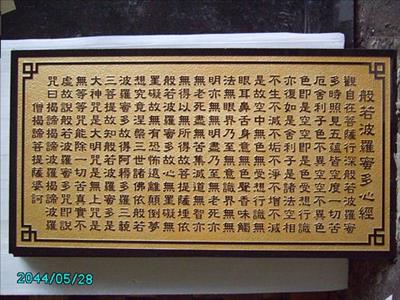 般若波羅蜜多心經
觀自在菩薩行深般若波羅蜜
多時照見五蘊皆空度一切苦
厄舍利子色不異空空不異色
色即是空空即是色受想行識
亦復如是舍利子是諸法空相
不生不滅不垢不淨不增不減
是故空中無色無受想行識無
眼耳鼻舌身意無色聲香味觸
法無眼界乃至無意識界無無
明亦無無明盡乃至無老死亦
無老死盡無苦集滅道無智亦
無得以無所得故菩提薩埵依
般若波羅蜜多故心無罣礙無
罣礙故無有恐怖遠離顛倒夢
想究竟涅槃三世諸佛依般若
波羅蜜多故得阿耨多羅三藐
三菩提故知般若波羅蜜多是
大神咒是大明咒是無上咒是
無等等咒能除一切苦真實不
虛故說般若波羅蜜多咒即說
咒曰揭諦揭諦波羅揭諦波羅
僧揭諦菩提薩婆訶
2044/05/28